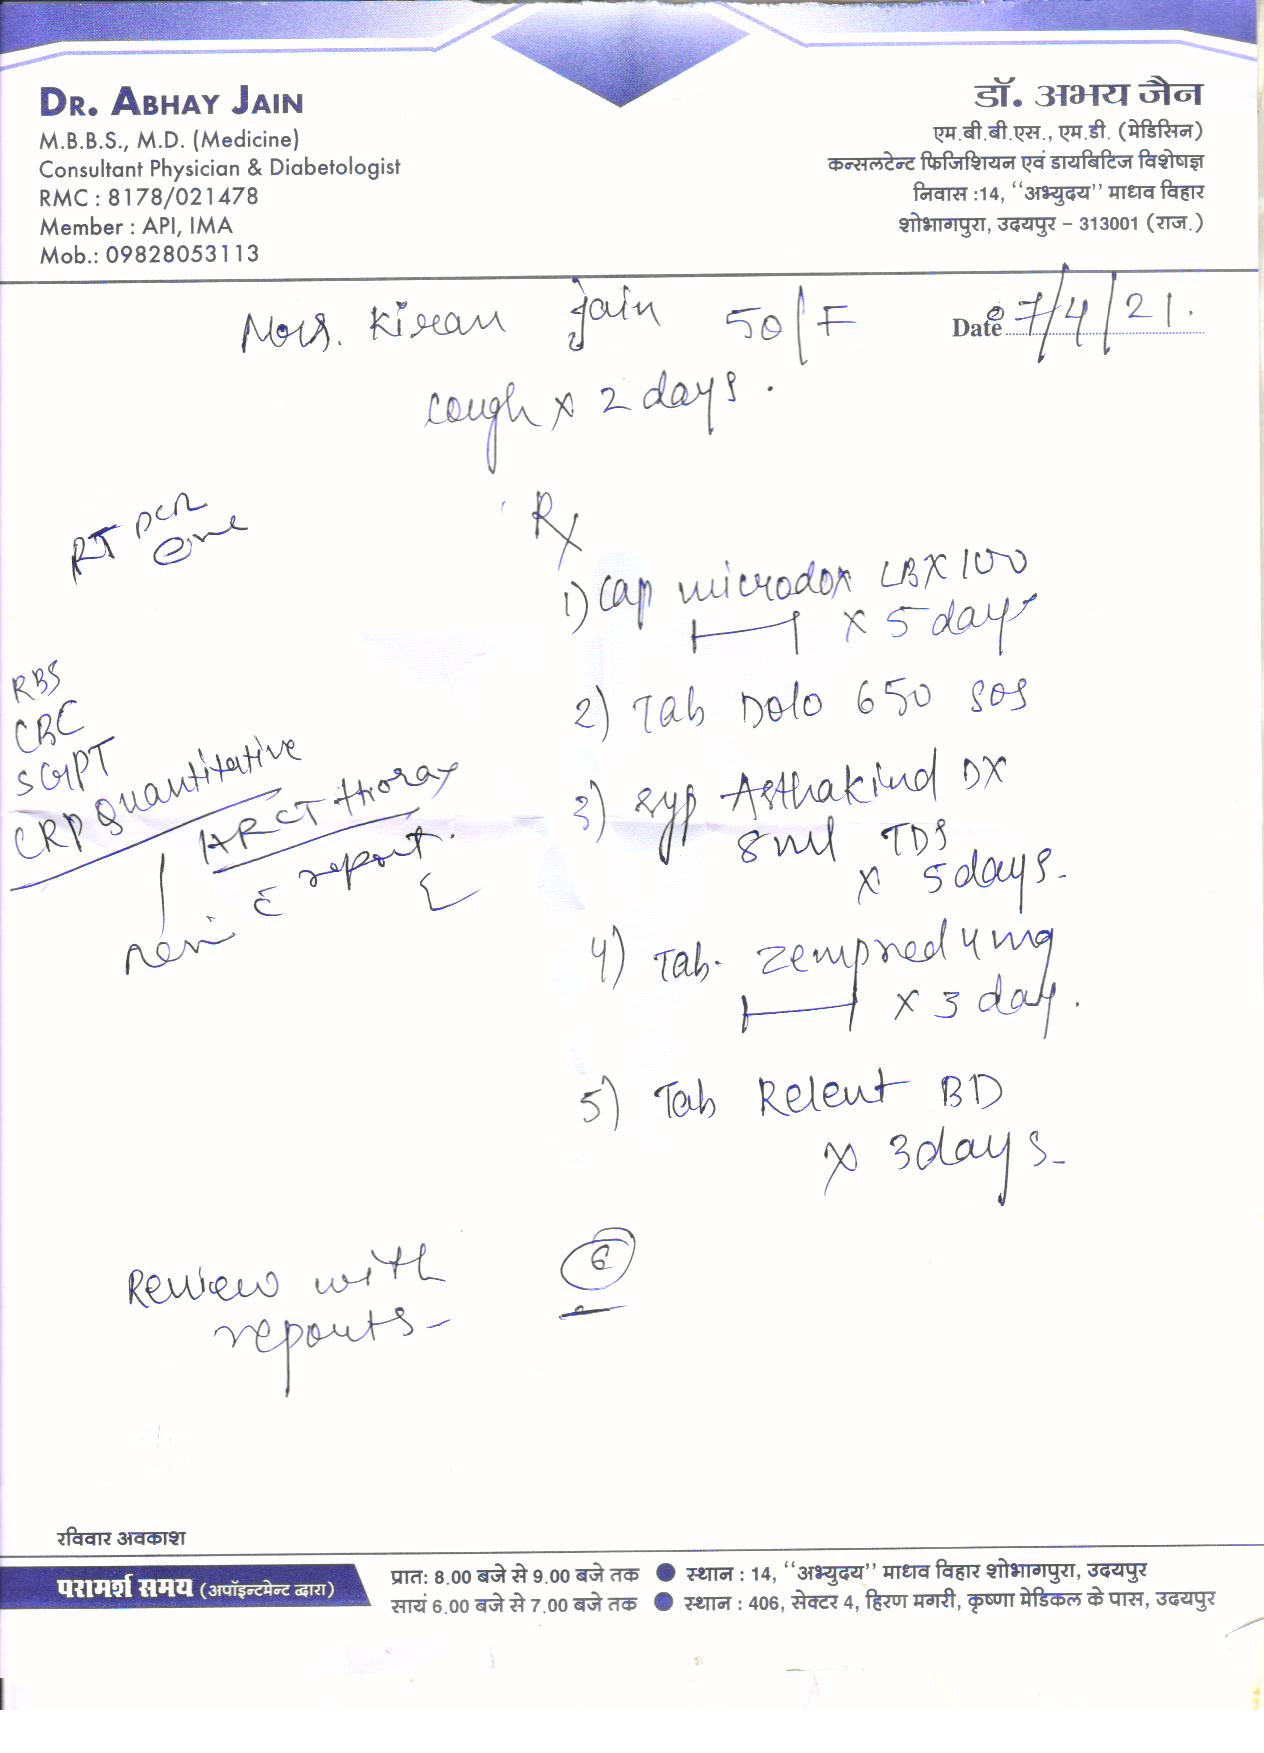 DR. ABHAY JAIN
M.B.B.S., M.D. (Medicine)
Consultant Physician & Diabetologist
RMC : 8178/021478
Member : API, IMA
Mob.: 09828053113
डॉ. अभय जैन
एम.बी.बी.एस., एम.डी. (मेडिसिन)
कन्सलटेन्ट फिजिशियन एवं डायबिटिज विशेषज्ञ
निवास :14, ‘‘अभ्युदय’’ माधव विहार
शोभागपुरा, उदयपुर – 313001 (राज.)
Mrs. Kiran Jain 50/F Date 07/4/21.
cough x 2 days.
RT PCR
Rx
1) Cap microdox LBX 100
x 5 days
2) Tab Dolo 650 SOS
3) Syp Asthakind DX
8 ml TDS
x 5 days.
4) Tab. Zempred 4 mg
x 3 day.
5) Tab Relent BD
x 3 days.
RBS
CBC
SGPT
CRP Quantitative
HRCT thorax
report.
Review with
reports.
6
रविवार अवकाश
परामर्श समय (अपॉइन्टमेन्ट द्वारा)
प्रात: 8.00 बजे से 9.00 बजे तक ● स्थान : 14, ‘‘अभ्युदय’’ माधव विहार शोभागपुरा, उदयपुर
सायं 6.00 बजे से 7.00 बजे तक ● स्थान : 406, सेक्टर 4, हिरण मगरी, कृष्णा मेडिकल के पास, उदयपुर